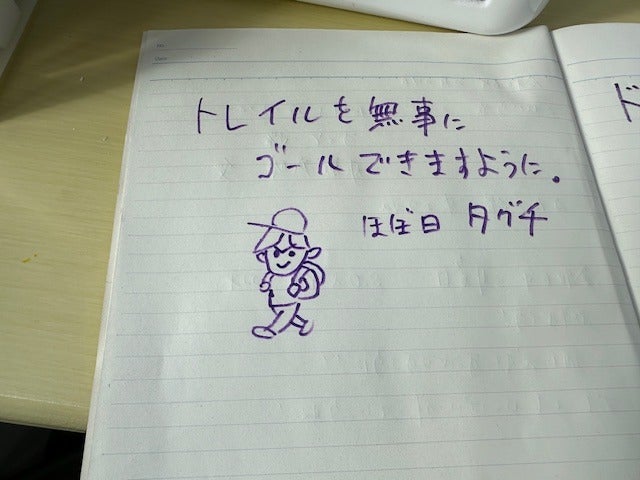 トレイルを無事に
ゴールできますように。
ほぼ日 タグチ
ド